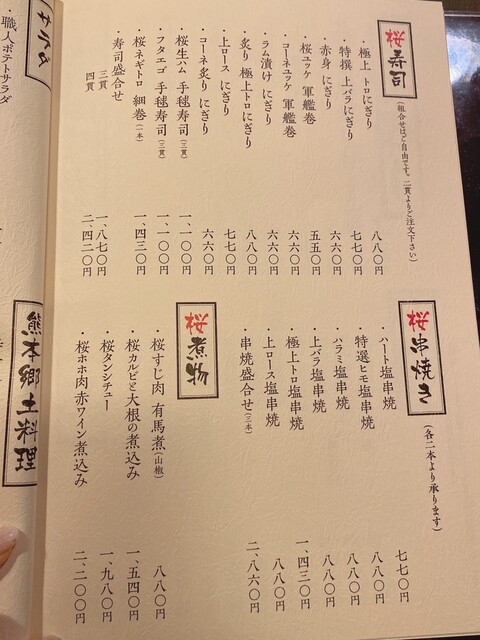 桜寿司
(組合せはご自由です。二貫よりご注文下さい)
・極上 トロにぎり 八八〇円
・特撰 上バラにぎり 七七〇円
・赤身 にぎり 六六〇円
・桜ユッケ 軍艦巻 五五〇円
・コーネユッケ 軍艦巻 六六〇円
・ラム漬け にぎり 六六〇円
・炙り 極上トロにぎり 八八〇円
・上ロース にぎり 七七〇円
・コーネ炙り にぎり 六六〇円
・桜生ハム 手毬寿司(三貫) 一、一〇〇円
・フタエゴ 手毬寿司(三貫) 一、一〇〇円
・桜ネギトロ 細巻(一本) 一、四三〇円
・寿司盛合せ
三貫 一、八七〇円
四貫 二、四二〇円
桜串焼き
(各二本より承ります)
・ハート塩串焼 七七〇円
・特選ヒモ塩串焼 八八〇円
・ハラミ塩串焼 八八〇円
・上バラ塩串焼 八八〇円
・極上トロ塩串焼 一、四三〇円
・上ロース塩串焼 八八〇円
・串焼盛合せ(三本) 二、八六〇円
桜煮物
・桜すじ肉 有馬煮(山椒) 八八〇円
・桜カルビと大根の煮込み 一、五四〇円
・桜タンシチュー 一、九八〇円
・桜ホホ肉 赤ワイン煮込み 二、二〇〇円
サラダ
・職人ポテトサラダ
熊本郷土料理